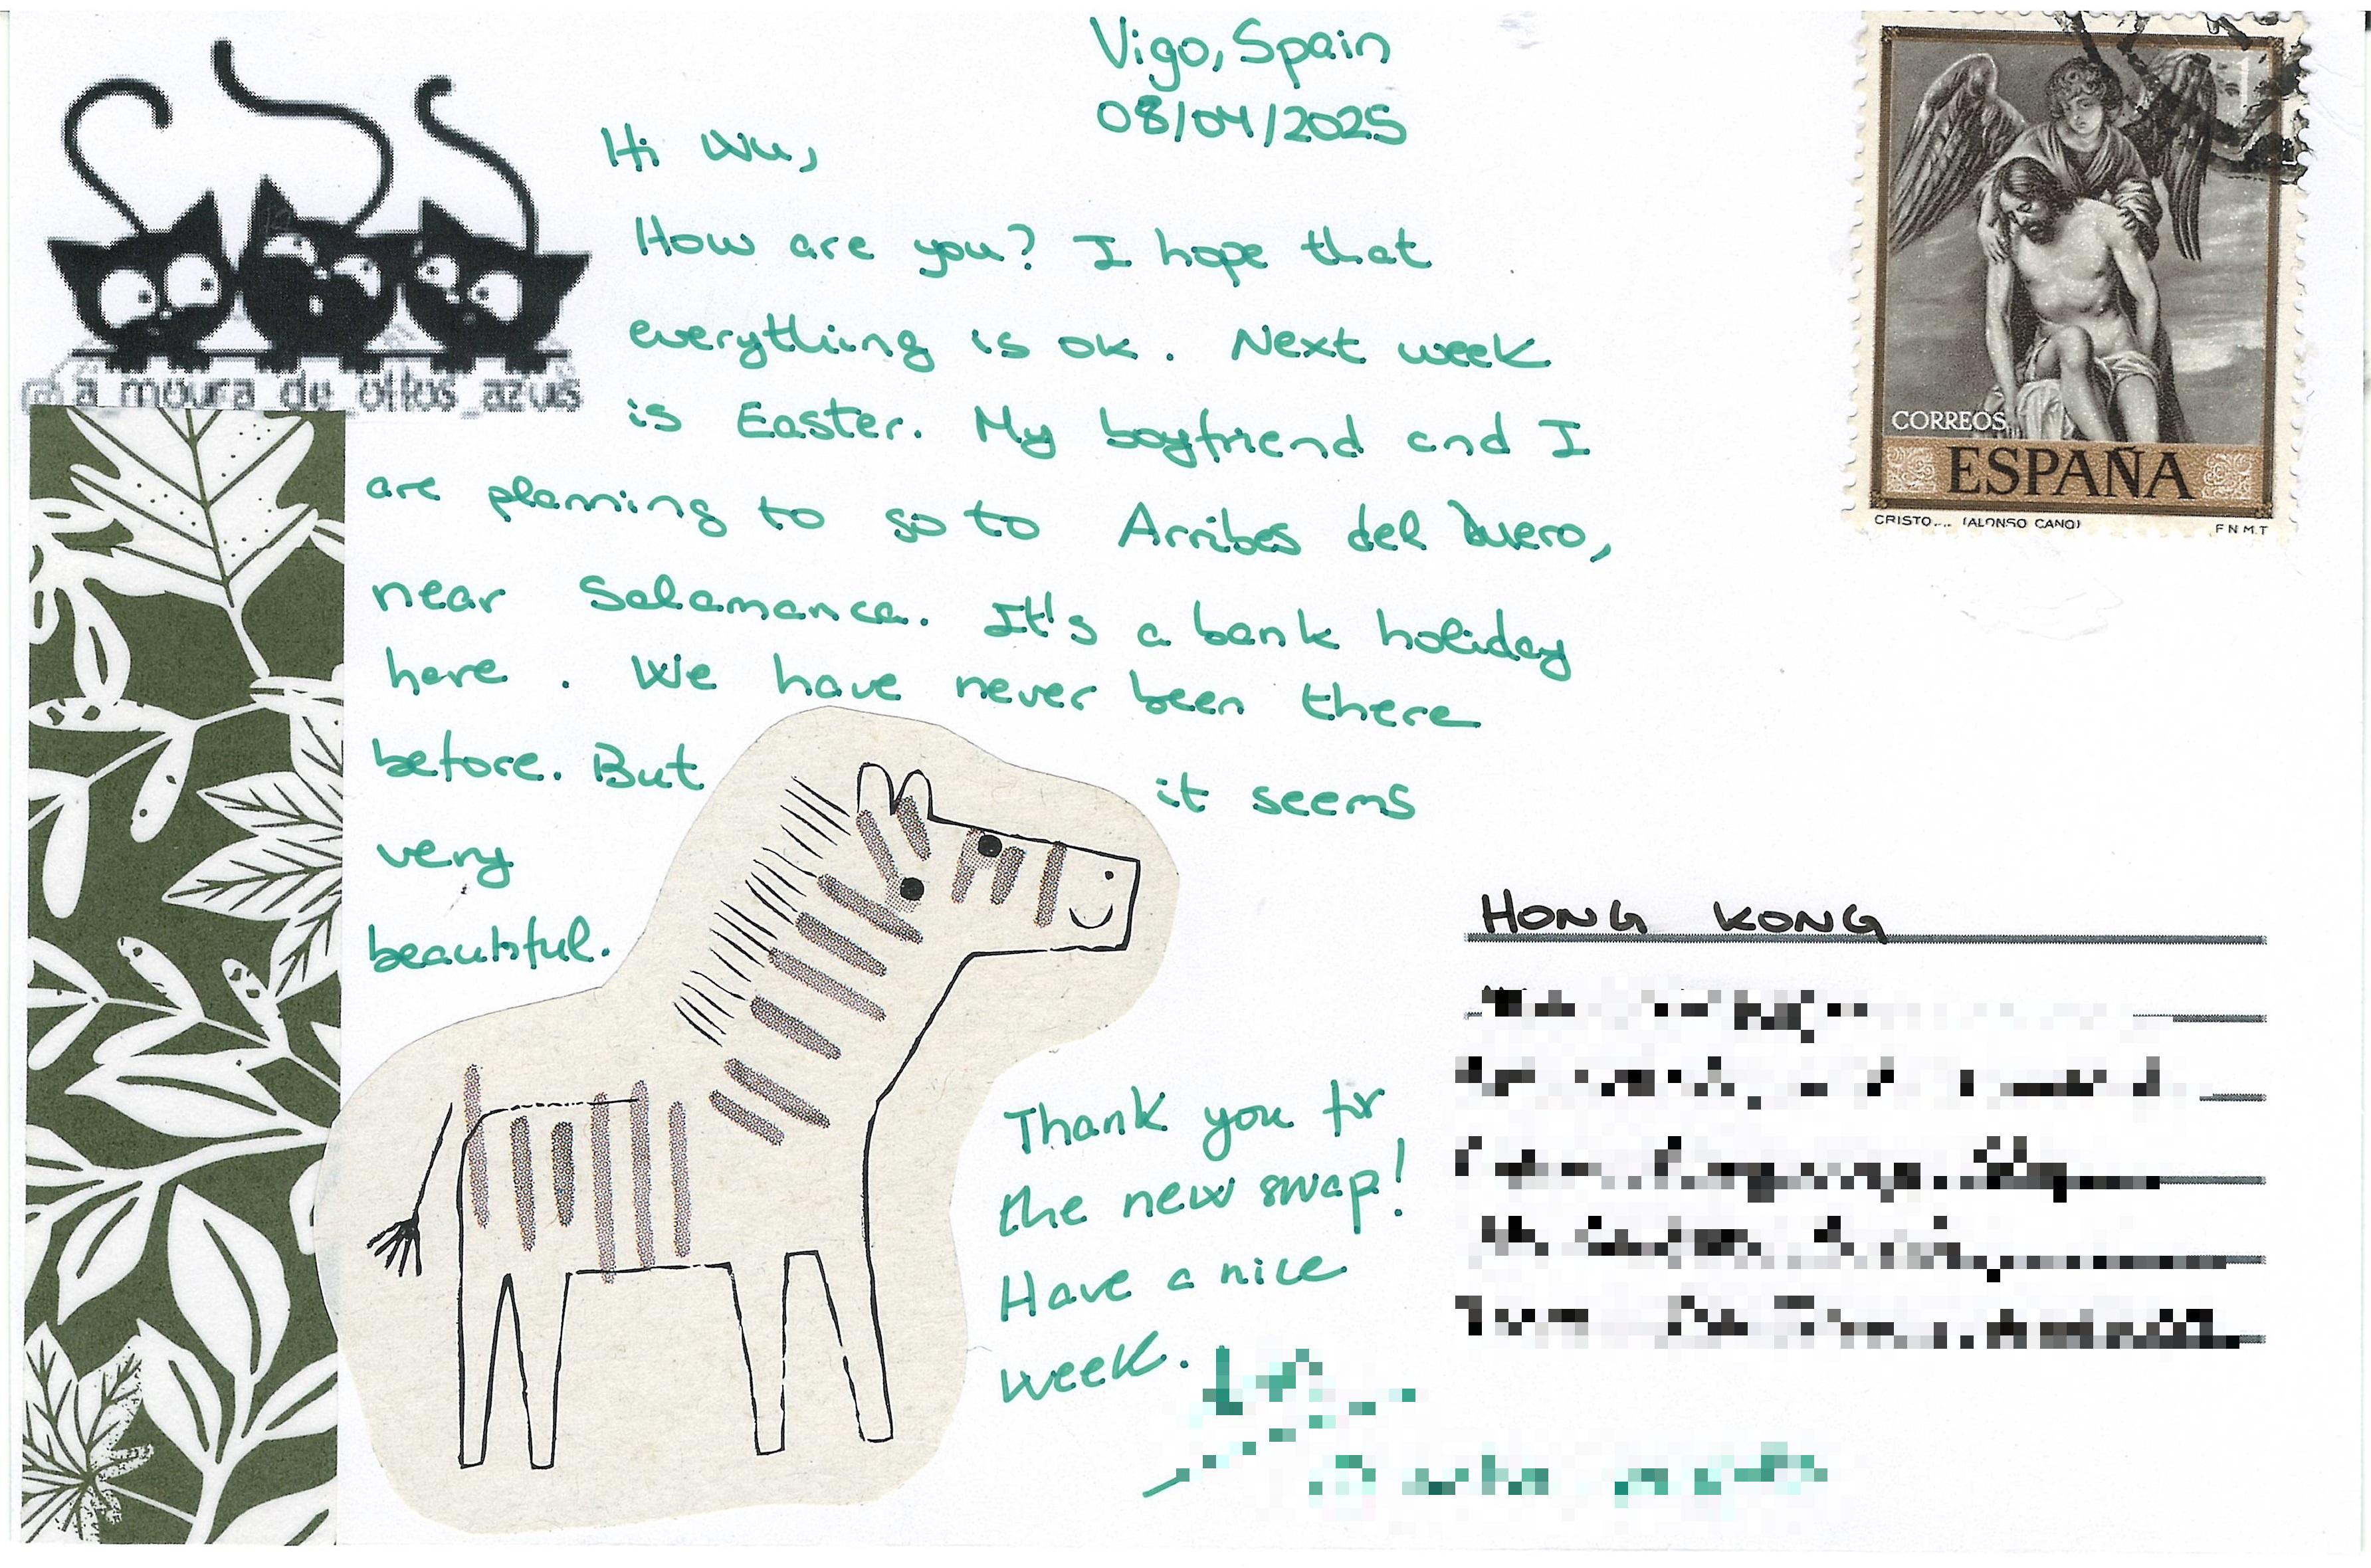 Vigo, Spain
08/04/2025
Hi Wu,
How are you? I hope that
everything is ok. Next week
is Easter. My boyfriend and I
are planning to go to Arribes del Duero,
near Salamanca. It's a bank holiday
here. We have never been there
before. But it seems
very
beautiful.
Thank you for
the new swap!
Have a nice
week.
a_moura_de_ollos_azuis
CORREOS
ESPAÑA
CRISTO... (ALONSO CANO) F.N.M.T
HONG KONG